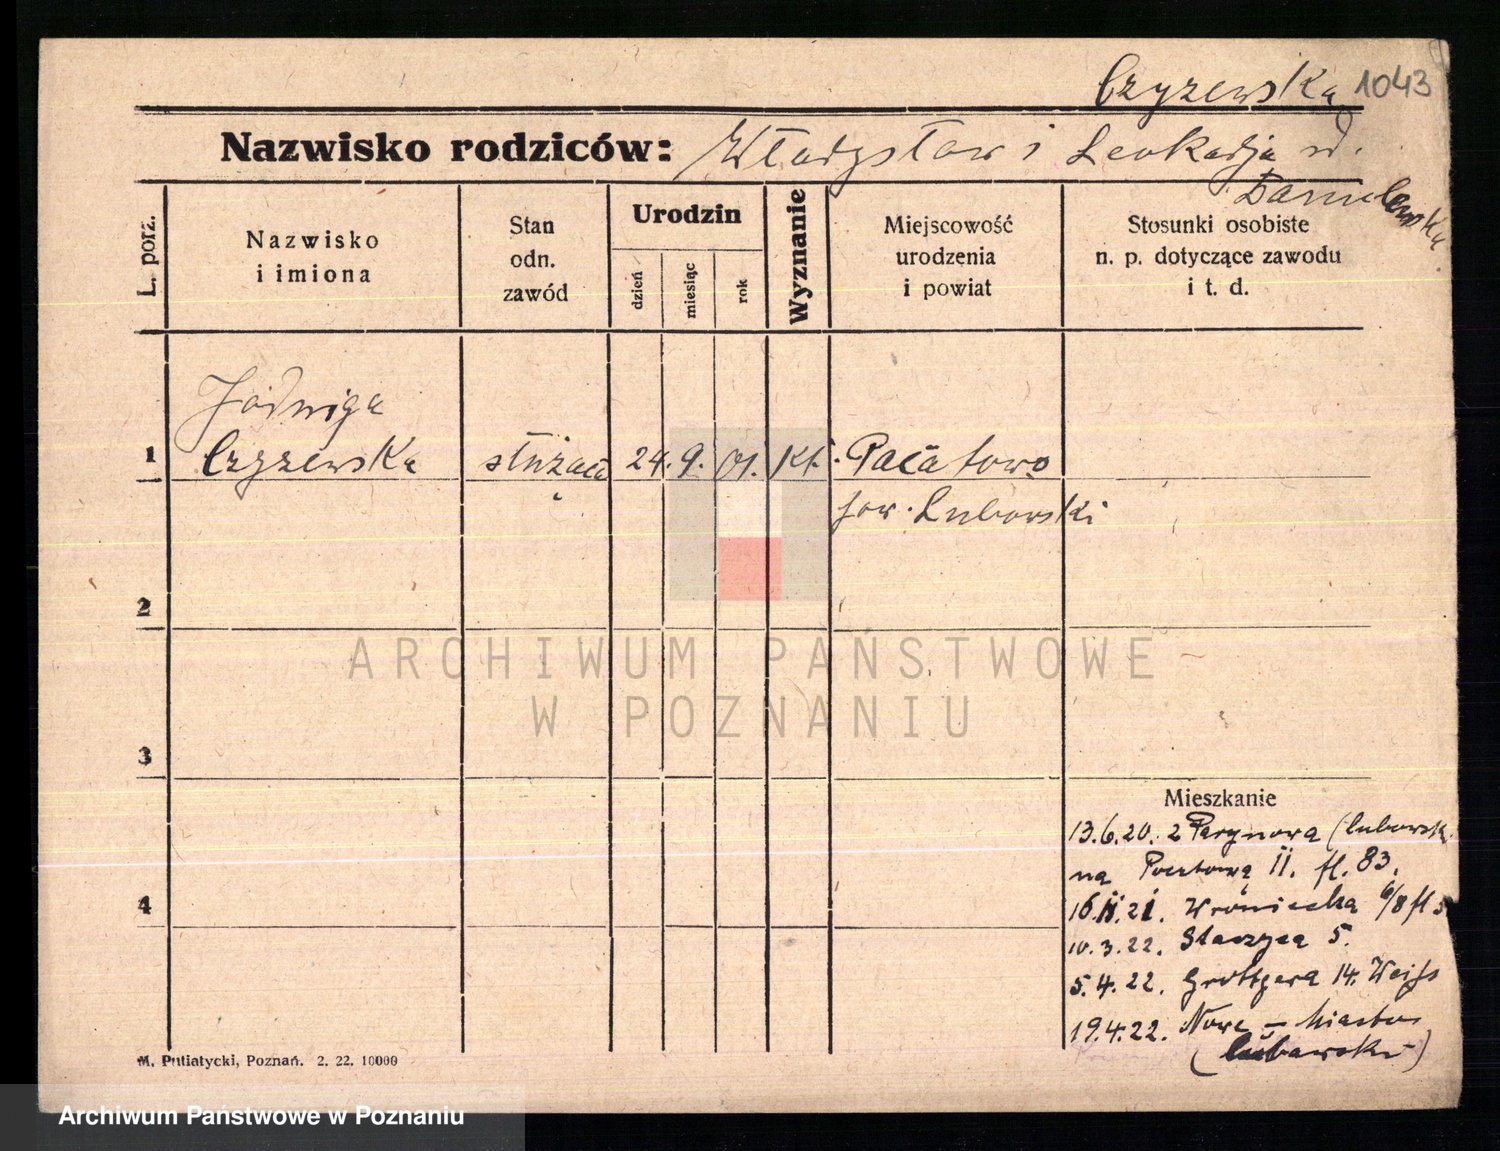 Czyżewska 1043
Nazwisko rodziców: Władysław i Leokadja
L. porz.
Nazwisko
i imiona
Stan
odn.
zawód
Urodzin
dzień
miesiąc
rok
Wyznanie
Miejscowość
urodzenia
i powiat
Stosunki osobiste
n. p. dotyczące zawodu
i t. d.
Jadwiga
1 Czyżewska służąca 24. 9. 01. kt.
pow. Lubawski
2
3
4
Mieszkanie
13.6.20. z (lubawsk.
na Pocztową II. fl. 83.
16.II.21. Wroniecka 6/8 fl 5
10.3.22. Staszyca 5.
5.4.22. Grottgera 14. Weiss
19.4.22. Nowe – Miasto
(lubawskie)
M. Putiatycki, Poznań. 2. 22. 10000
ARCHIWUM PAŃSTWOWE
W POZNANIU
Archiwum Państwowe w Poznaniu